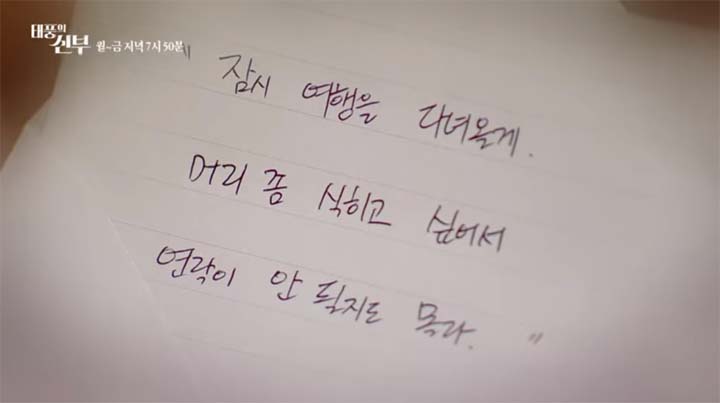 태풍의
신부 월~금 저녁 7시 50분
" 잠시 여행을 다녀올게.
머리 좀 식히고 싶어서
연락이 안 될지도 몰라. "